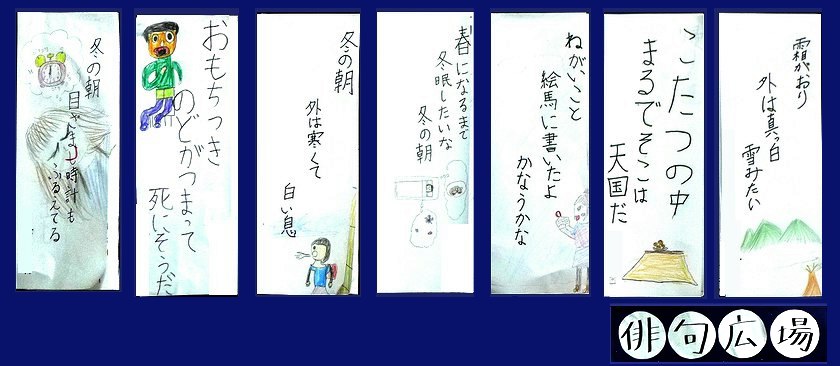 霜がおり
外は真っ白
雪みたい
こたつの中
まるでそこは
天国だ
ねがいごと
絵馬に書いたよ
かなうかな
春になるまで
冬眠したいな
冬の朝
冬の朝
外は寒くて
白い息
おもちつき
のどがつまって
死にそうだ
冬の朝
目ざまし時計も
ふるえてる
俳句広場